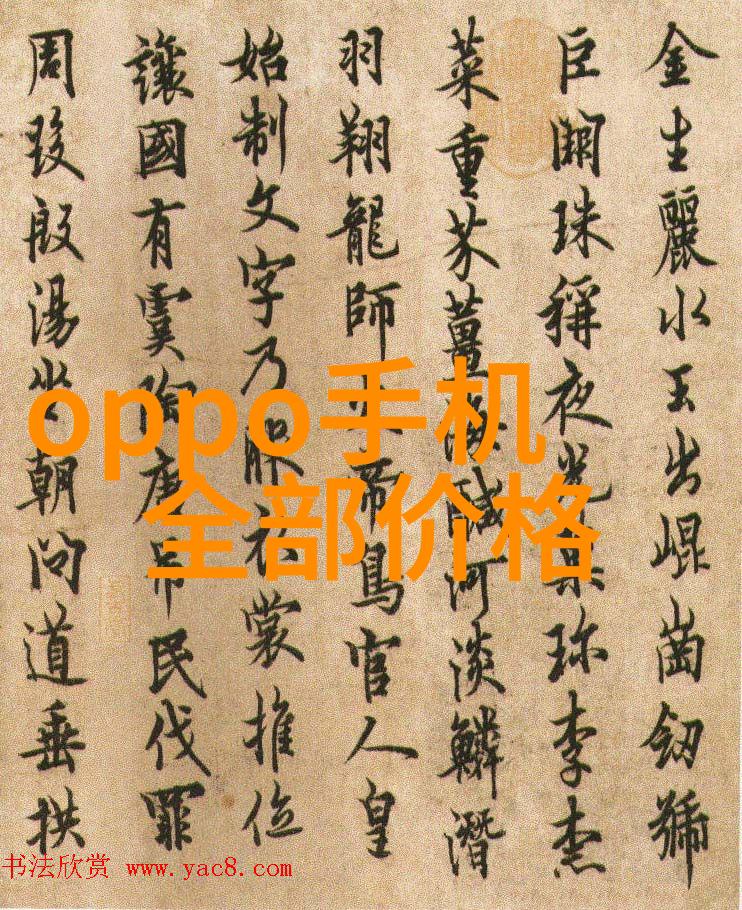 金生麗水玉出崐崗劒號
巨闕珠稱夜光菓珎李柰
菜重芥薑海醎河淡鱗潛
羽翔龍師火帝鳥官人皇
始制文字乃服衣裳推位
讓國有虞陶唐吊民伐罪
周發殷湯坐朝問道垂拱
oppo手机
全部价格
书法欣赏 www.yac8.com